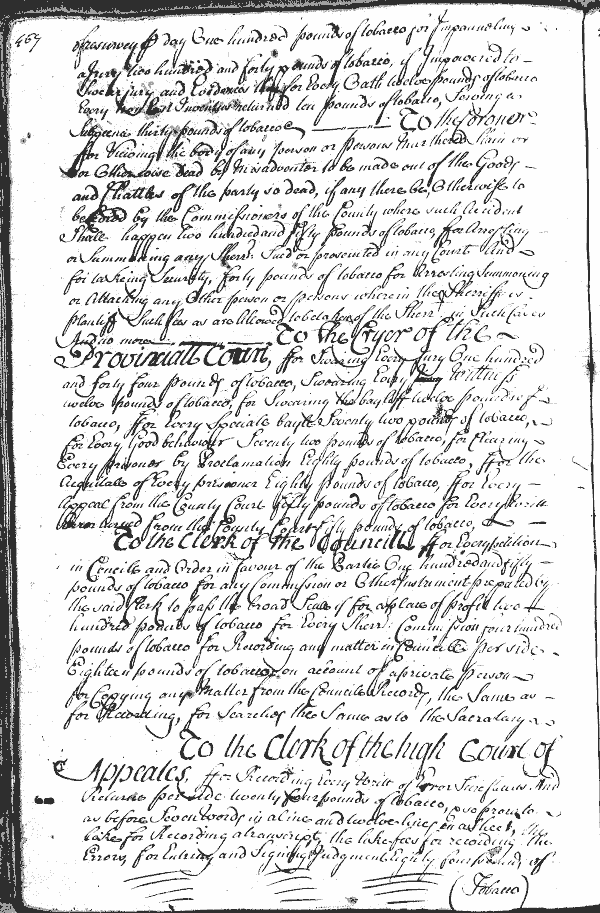 467
aforesurvey ₱ day One hundred pounds of tobacco for Impanneling
a Jury two hundred and forty pounds of tobacco, if Impowered to
Swear jury and Evidences for Every Oath twelve pounds of tobacco
Every Inventory returned ten pounds of tobacco, Serving a
Subpena thirty pounds of tobacco To the Coroner
ffor Viewing the body of any person or persons Murthered Slain or
or Otherwise dead by Misadventer to be made out of the Goods
and Chattles of the party so dead, if any there be, Otherwise to
be by the Commissioners of the County where such Accident
Shall happen two hundred and fifty pounds of tobacco ffor Arresting
or Summoning any Sherr: Sued or prosecuted in any Court And
for taking Security, forty pounds of tobacco for arresting Summoning
or Attacking any Other person or persons wherein the Sherriffe is
plantiff Such fees as are Allowed to be taken of the Sherr: in Such Cases
And no more To the Cryer of the
Provinciall Court, ffor Swearing Every Jury One hundred
and forty four pounds of tobacco, Swearing Every Wittness
twelve pounds of tobacco, for Swearing the bayliff twelve pounds of
tobacco, ffor Every Speciale bayle Seventy two pounds of tobacco,
for Every Good behaviour Seventy two pounds of tobacco, for Clearing
Every prisoner by Proclamation Eighty pounds of tobacco, ffor the
Acquitale of Every presoner Eighty pounds of tobacco, ffor Every
Appeal from the County Court fifty pounds of tobacco for Every Writt
Error from the County Court fifty pounds of tobacco,
To the Clerk of the Councill ffor Every petition
in Councile and Order in favour of the Partie One hundred and fifty
pounds of tobacco for any Commission or Other instrument prepared by
the said Clerk to pass the broad Seale if for a place of profit two
hundred pounds of tobacco for Every Sherr: Commission four hundred
pounds of tobacco for Recording any matter in Councile per side
Eighteen pounds of tobacco, on account of a private person
for Copying any Matter from the Councile Records, the Same as
for Recording, for Searches the Same as to the Sacratary
To the Clerk of the high Court of
Appeales, ffor Recording Every Writt of Error And
Returne per side twenty four pounds of tobacco,
as before Seven words in a line and twelve lines in a sheet, the
like for Recording a transcript, the like fees for recording the
Errors, for Entring and Signing Judgment Eighty four pounds of
(Tobacco)